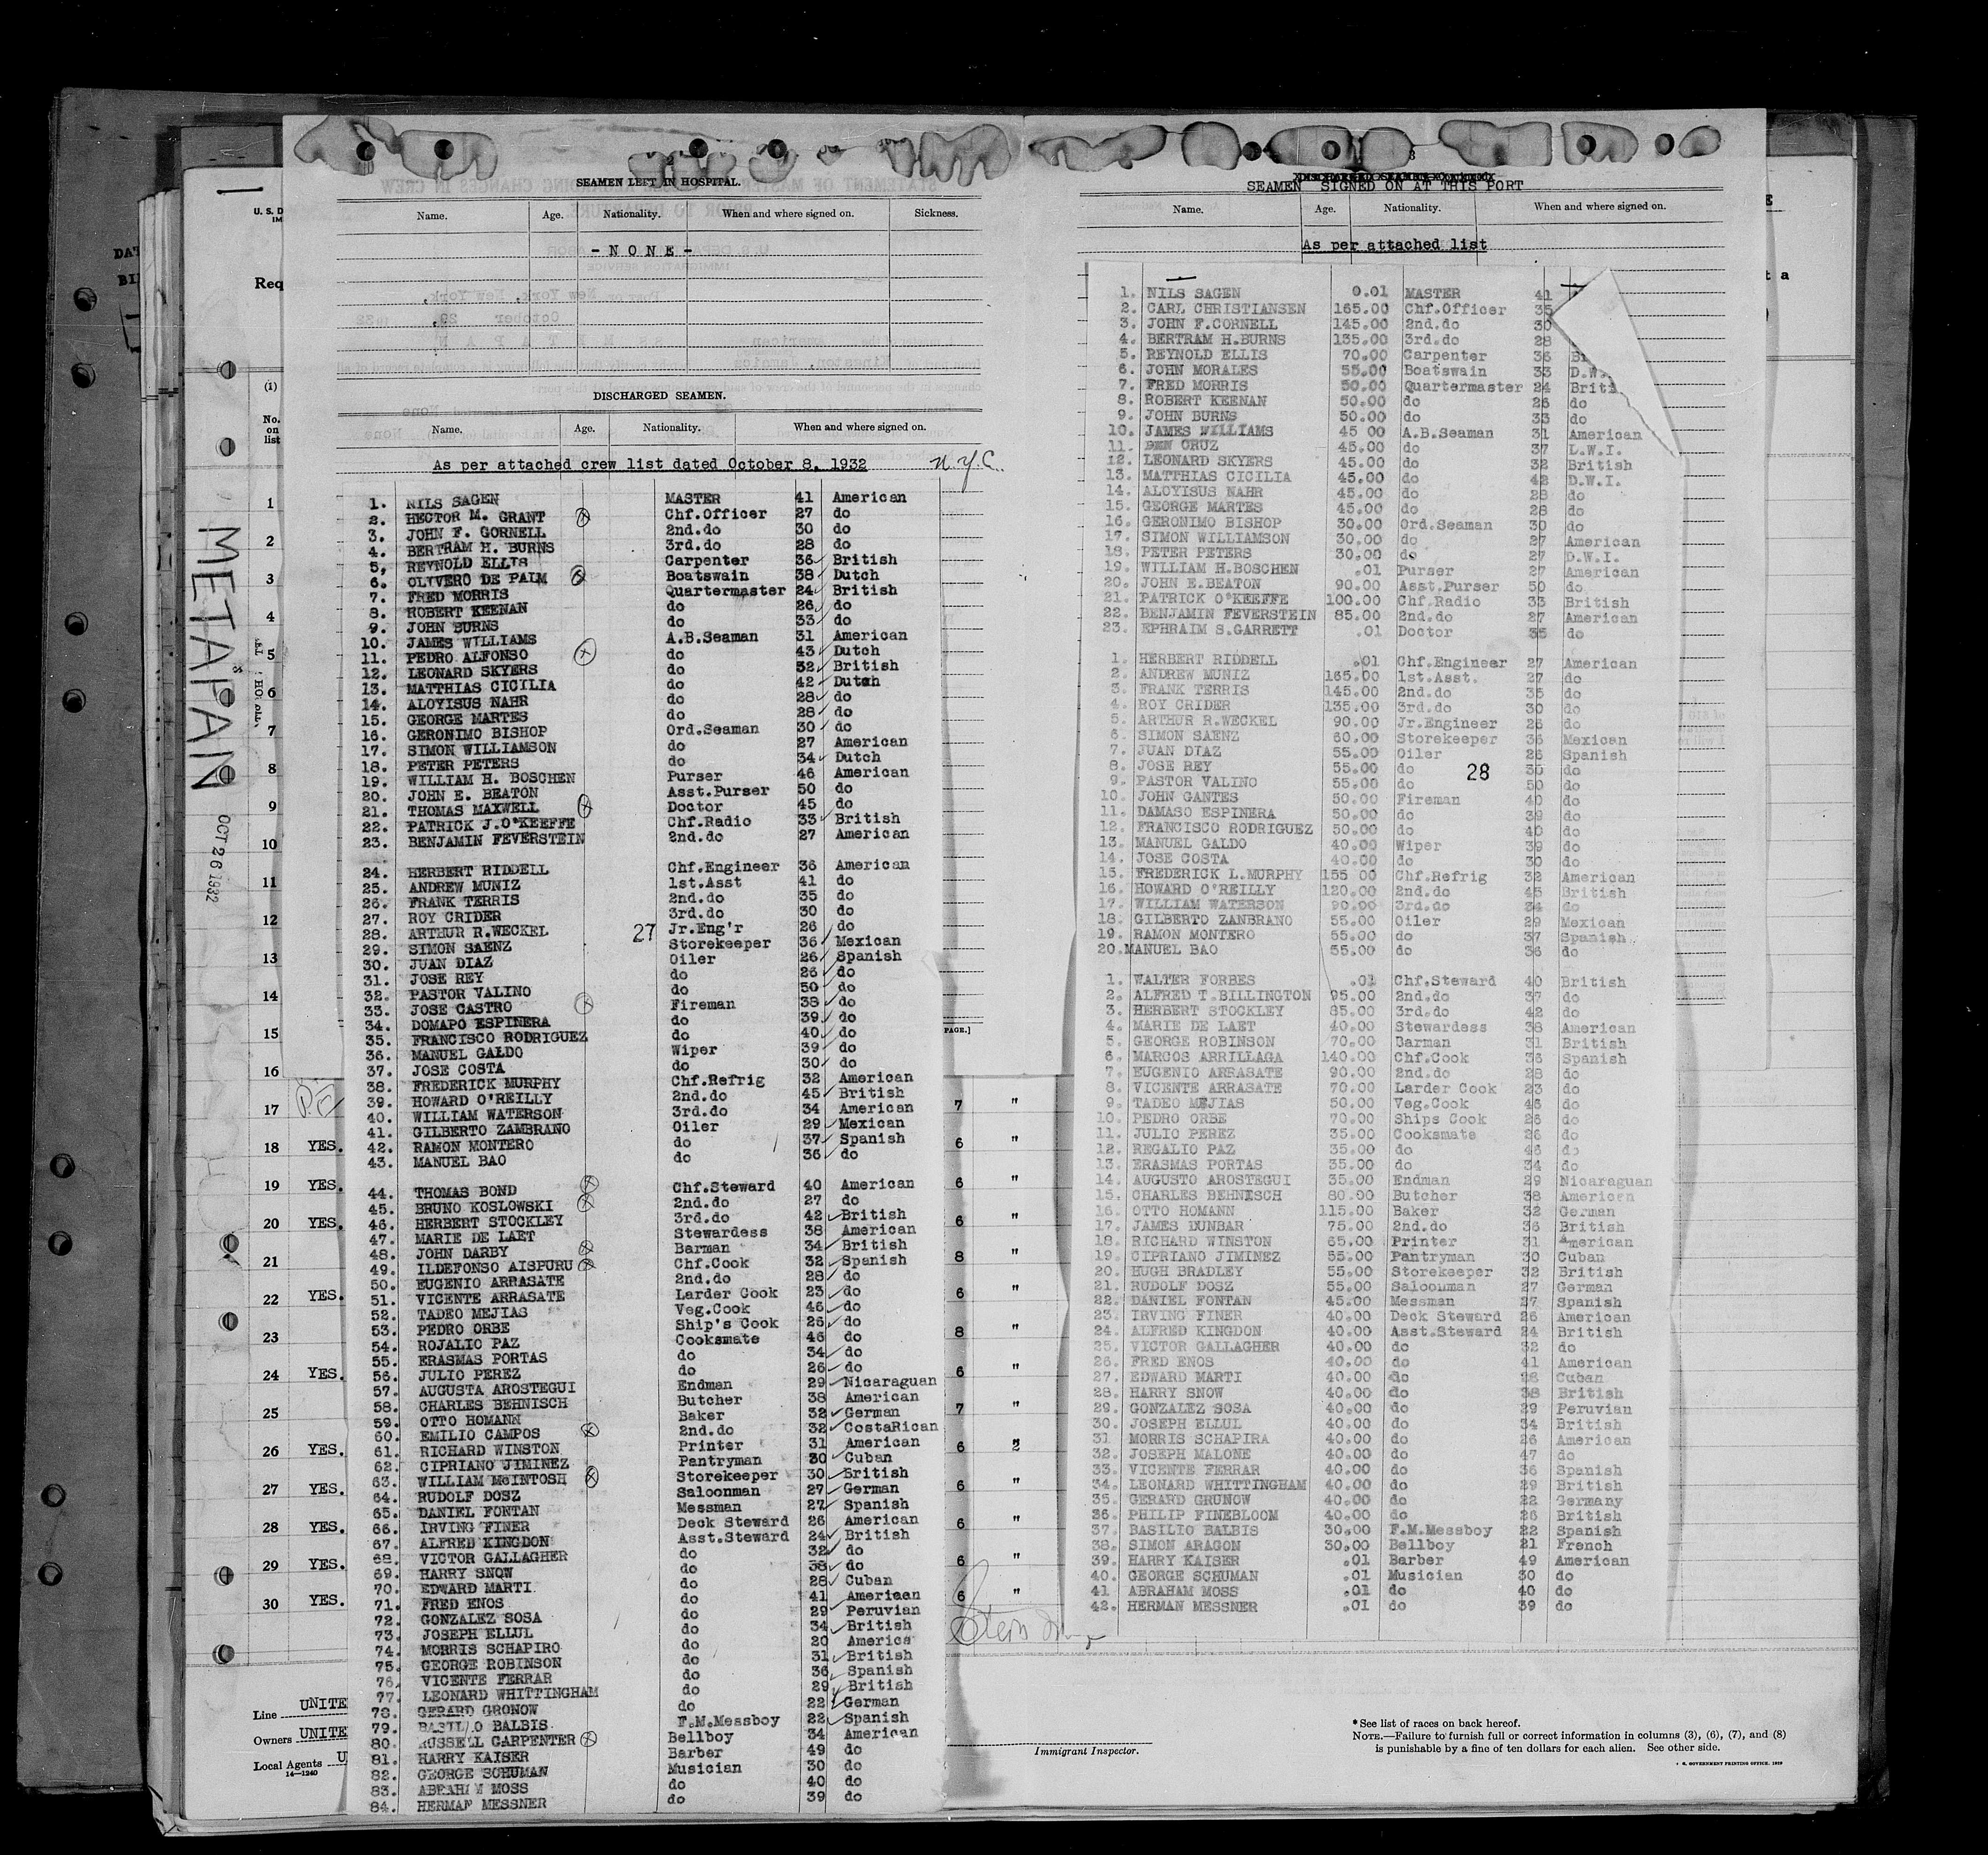 SEAMEN LEFT IN HOSPITAL.
Name. Age. Nationality. When and where signed on. Sickness.
- N O N E -
DISCHARGED SEAMEN.
Name. Age. Nationality. When and where signed on.
As per attached crew list dated October 8, 1932 N.Y.C.
1. NILS SAGEN MASTER 41 American
2. HECTOR M. GRANT Chf.Officer 27 do
3. JOHN F. GORNELL 2nd.do 30 do
4. BERTRAM H. BURNS 3rd.do 28 do
5, REYNOLD ELLIS Carpenter 36 British
6. OLIVERO DE PALM Boatswain 38 Dutch
7. FRED MORRIS Quartermaster 24 British
8. ROBERT KEENAN do 26 do
9. JOHN BURNS do 33 do
10. JAMES WILLIAMS A.B.Seaman 31 American
11. PEDRO ALFONSO do 43 Dutch
12. LEONARD SKYERS do 32 British
13. MATTHIAS CICILIA do 42 Dutch
14. ALOYISUS NAHR do 28 do
15. GEORGE MARTES do 28 do
16. GERONIMO BISHOP Ord.Seaman 30 do
17. SIMON WILLIAMSON do 27 American
18. PETER PETERS do 34 Dutch
19. WILLIAM H. BOSCHEN Purser 46 American
20. JOHN E. BEATON Asst.Purser 50 do
21. THOMAS MAXWELL Doctor 45 do
22. PATRICK J.O'KEEFFE Chf.Radio 33 British
23. BENJAMIN FEVERSTEIN 2nd.do 27 American
24. HERBERT RIDDELL Chf.Engineer 36 American
25. ANDREW MUNIZ 1st.Asst 41 do
26. FRANK TERRIS 2nd.do 35 do
27. ROY CRIDER 3rd.do 30 do
28. ARTHUR R.WECKEL 27 Jr.Eng'r 26 do
29. SIMON SAENZ Storekeeper 36 Mexican
30. JUAN DIAZ Oiler 26 Spanish
31. JOSE REY do 26 do
32. PASTOR VALINO do 50 do
33. JOSE CASTRO Fireman 38 do
34. DOMAPO ESPINERA do 39 do
35. FRANCISCO RODRIGUEZ do 40 do
36. MANUEL GALDO Wiper 39 do
37. JOSE COSTA do 30 do
38. FREDERICK MURPHY Chf.Refrig 32 American
39. HOWARD O'REILLY 2nd.do 45 British
40. WILLIAM WATERSON 3rd.do 34 American
41. GILBERTO ZAMBRANO Oiler 29 Mexican
42. RAMON MONTERO do 37 Spanish
43. MANUEL BAO do 36 do
44. THOMAS BOND Chf.Steward 40 American
45. BRUNO KOSLOWSKI 2nd.do 27 do
46. HERBERT STOCKLEY 3rd.do 42 British
47. MARIE DE LAET Stewardess 38 American
48. JOHN DARBY Barman 34 British
49. ILDEFONSO AISPURU Chf.Cook 32 Spanish
50. EUGENIO ARRASATE 2nd.do 28 do
51. VICENTE ARRASATE Larder Cook 23 do
52. TADEO MEJIAS Veg.Cook 46 do
53. PEDRO ORBE Ship's Cook 25 do
54. ROJALIO PAZ Cooksmate 46 do
55. ERASMAS PORTAS do 34 do
56. JULIO PEREZ do 26 do
57. AUGUSTA AROSTEGUI Endman 29 Nicaraguan
58. CHARLES BEHNISCH Butcher 38 American
59. OTTO HOMANN Baker 32 German
60. EMILIO CAMPOS 2nd.do 32 CostaRican
61. RICHARD WINSTON Printer 31 American
62. CIPRIANO JIMINEZ Pantryman 30 Cuban
63. WILLIAM McINTOSH Storekeeper 30 British
64. RUDOLF DOSZ Saloonman 27 German
65. DANIEL FONTAN Messman 27 Spanish
66. IRVING FINER Deck Steward 26 American
67. ALFRED KINGDON Asst.Steward 24 British
68. VICTOR GALLAGHER do 32 do
69. HARRY SNOW do 38 do
70. EDWARD MARTI do 28 Cuban
71. FRED ENOS do 41 American
72. GONZALEZ SOSA do 29 Peruvian
73. JOSEPH ELLUL do 34 British
74. MORRIS SCHAPIRO do 20 America
75. GEORGE ROBINSON do 31 British
76. VICENTE FERRAR do 36 Spanish
77. LEONARD WHITTINGHAM do 29 British
78. GERARD GRONOW do 22 German
79. BASILIO BALBIS F.M.Messboy 22 Spanish
80. RUSSELL CARPENTER Bellboy 34 American
81. HARRY KAISER Barber 49 do
82. GEORGE SCHUMAN Musician 30 do
83. ABRAHAM MOSS do 40 do
84. HERMAN MESSNER do 39 do
SEAMEN SIGNED ON AT THIS PORT
Name. Age. Nationality. When and where signed on.
As per attached list
1. NILS SAGEN 0.01 MASTER 41
2. CARL CHRISTIANSEN 165.00 Chf.Officer 35
3. JOHN F.CORNELL 145.00 2nd.do 30
4. BERTRAM H.BURNS 135.00 3rd.do 28
5. REYNOLD ELLIS 70.00 Carpenter 36
6. JOHN MORALES 55.00 Boatswain 33 D.W.
7. FRED MORRIS 50.00 Quartermaster 24 Briti
8. ROBERT KEENAN 50.00 do 26 do
9. JOHN BURNS 50.00 do 33 do
10. JAMES WILLIAMS 45 00 A.B.Seaman 31 American
11. BEN CRUZ 45.00 do 37 D.W.I.
12. LEONARD SKYERS 45.00 do 32 British
13. MATTHIAS CICILIA 45.00 do 42 D.W.I.
14. ALOYISUS NAHR 45.00 do 28 do
15. GEORGE MARTES 45.00 do 28 do
16. GERONIMO BISHOP 30.00 Ord.Seaman 30 do
17. SIMON WILLIAMSON 30.00 do 27 American
18. PETER PETERS 30.00 do 27 D.W.I.
19. WILLIAM H.BOSCHEN .01 Purser 27 American
20. JOHN E.BEATON 90.00 Asst.Purser 50 do
21. PATRICK O'KEEFFE 100.00 Chf.Radio 33 British
22. BENJAMIN FEVERSTEIN 85.00 2nd.do 27 American
23. EPHRAIM S.GARRETT .01 Doctor 35 do
1. HERBERT RIDDELL .01 Chf.Engineer 27 American
2. ANDREW MUNIZ 165.00 1st.Asst. 27 do
3. FRANK TERRIS 145.00 2nd.do 35 do
4. ROY CRIDER 135.00 3rd.do 30 do
5. ARTHUR R.WECKEL 90.00 Jr.Engineer 26 do
6. SIMON SAENZ 60.00 Storekeeper 36 Mexican
7. JUAN DIAZ 55.00 Oiler 26 Spanish
8. JOSE REY 55.00 do 28 36 do
9. PASTOR VALINO 55.00 do 50 do
10. JOHN GANTES 50.00 Fireman 40 do
11. DAMASO ESPINERA 50.00 do 39 do
12. FRANCISCO RODRIGUEZ 50.00 do 40 do
13. MANUEL GALDO 40.00 Wiper 39 do
14. JOSE COSTA 40.00 do 30 do
15. FREDERICK L.MURPHY 155 00 Chf.Refrig 32 American
16. HOWARD O'REILLY 120.00 2nd.do 45 British
17. WILLIAM WATERSON 90.00 3rd.do 34 do
18. GILBERTO ZANBRANO 55.00 Oiler 29 Mexican
19. RAMON MONTERO 55.00 do 37 Spanish
20. MANUEL BAO 55.00 do 36 do
1. WALTER FORBES .01 Chf.Steward 40 British
2. ALFRED T.BILLINGTON 95.00 2nd.do 37 do
3. HERBERT STOCKLEY 85.00 3rd.do 42 do
4. MARIE DE LAET 40.00 Stewardess 38 American
5. GEORGE ROBINSON 70.00 Barman 31 British
6. MARCOS ARRILLAGA 140.00 Chf.Cook 36 Spanish
7. EUGENIO ARRASATE 90.00 2nd.do 28 do
8. VICENTE ARRASATE 70.00 Larder Cook 23 do
9. TADEO MEJIAS 50.00 Veg.Cook 46 do
10. PEDRO ORBE 70.00 Ships Cook 26 do
11. JULIO PEREZ 35.00 Cooksmate 26 do
12. REGALIO PAZ 35.00 do 46 do
13. ERASMAS PORTAS 35.00 do 34 do
14. AUGUSTO AROSTEGUI 35.00 Endman 29 Nicaraguan
15. CHARLES BEHNISCH 80.00 Butcher 38 American
16. OTTO HOMANN 115.00 Baker 32 German
17. JAMES DUNBAR 75.00 2nd.do 36 British
18. RICHARD WINSTON 65.00 Printer 31 American
19. CIPRIANO JIMINEZ 55.00 Pantryman 30 Cuban
20. HUGH BRADLEY 55.00 Storekeeper 32 British
21. RUDOLF DOSZ 55.00 Saloonman 27 German
22. DANIEL FONTAN 45.00 Messman 27 Spanish
23. IRVING FINER 40.00 Deck Steward 26 American
24. ALFRED KINGDON 40.00 Asst.Steward 24 British
25. VICTOR GALLAGHER 40.00 do 32 do
26. FRED ENOS 40.00 do 41 American
27. EDWARD MARTI 40.00 do 28 Cuban
28. HARRY SNOW 40.00 do 38 British
29. GONZALEZ SOSA 40.00 do 29 Peruvian
30. JOSEPH ELLUL 40.00 do 34 British
31 MORRIS SCHAPIRA 40.00 do 26 American
32. JOSEPH MALONE 40.00 do 47 do
33. VICENTE FERRAR 40.00 do 36 Spanish
34. LEONARD WHITTINGHAM 40.00 do 29 British
35. GERARD GRUNOW 40.00 do 22 Germany
36. PHILIP FINEBLOOM 40.00 do 26 British
37. BASILIO BALBIS 30.00 F.M.Messboy 22 Spanish
38. SIMON ARAGON 30.00 Bellboy 21 French
39. HARRY KAISER .01 Barber 49 American
40. GEORGE SCHUMAN .01 Musician 30 do
41 ABRAHAM MOSS .01 do 40 do
42. HERMAN MESSNER .01 do 39 do
METAPAN
OCT 26 1932
U. S. D
Req
(1)
No. on list
1
2
3
4
5
6
7
8
9
10
11
12
13
14
15
16
17 7 "
18 YES. 6 "
19 YES. 6 "
20 YES. 6 "
21 8 "
22 YES. 6 "
23 8 "
24 YES. 6 "
25 7 "
26 YES. 6 "
27 YES. 6 "
28 YES. 6 "
29 YES. 6 "
30 YES. 6 "
PAGE.]
Line UNITE
Owners UNITE
Local Agents U
14—1240
Immigrant Inspector.
*See list of races on back hereof.
NOTE.—Failure to furnish full or correct information in columns (3), (6), (7), and (8)
is punishable by a fine of ten dollars for each alien. See other side.